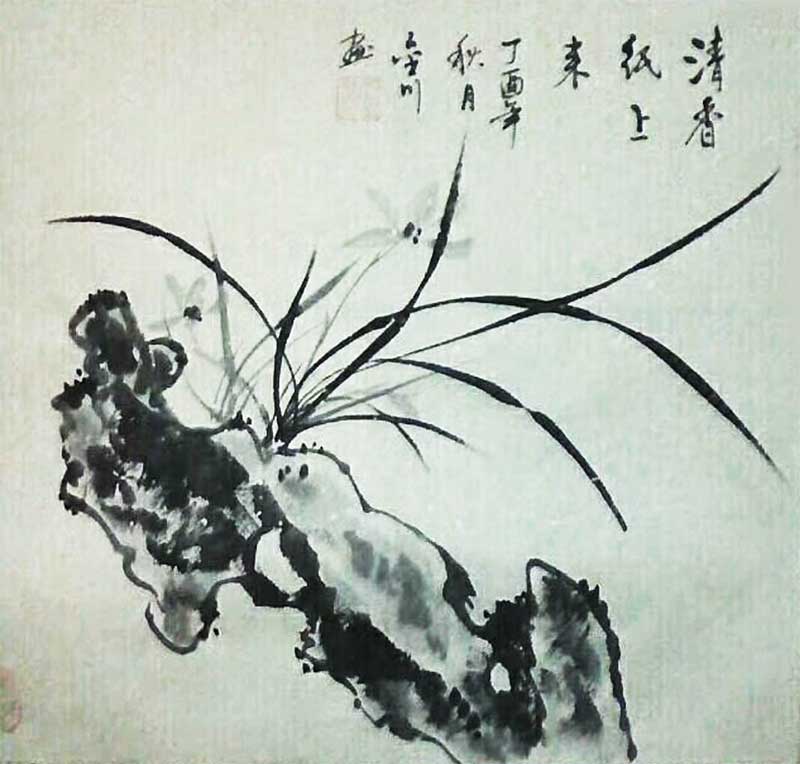 清香
纸上
来
丁酉年
秋月
金川
画